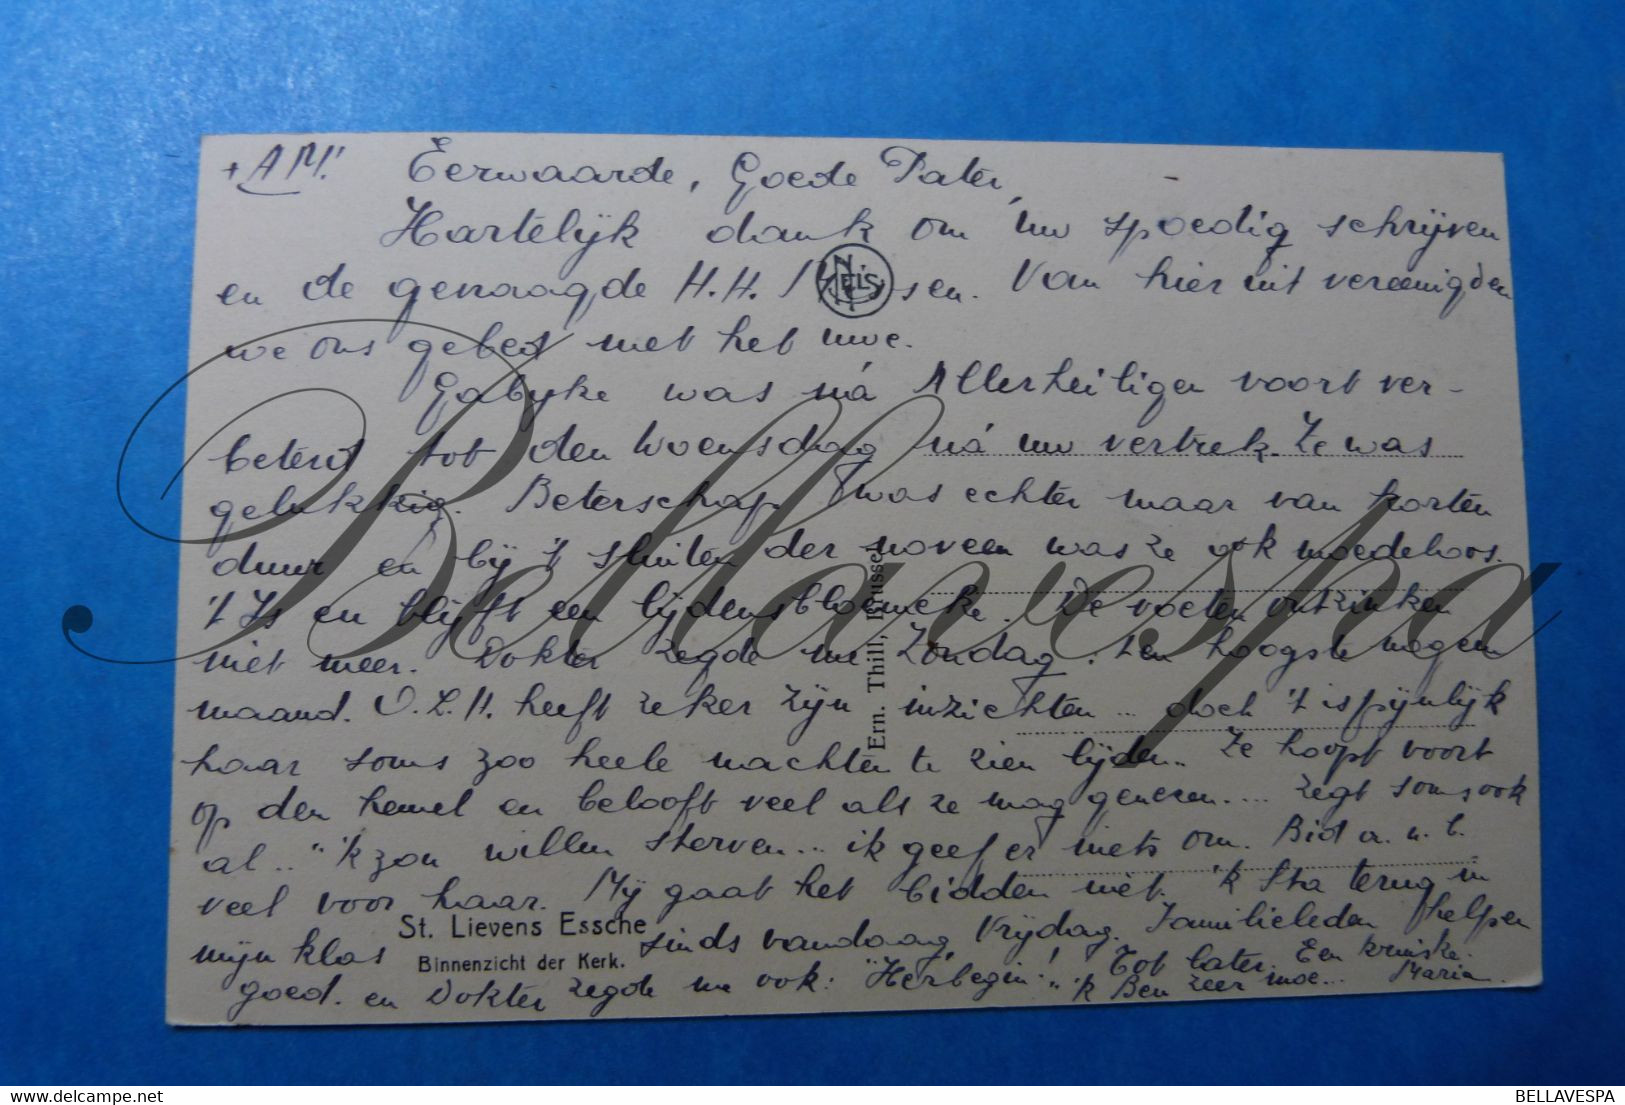 + A M! Eerwaarde, Goede Pater,
Hartelijk dank om uw spoedig schrijven
en de gevraagde H.H. Missen. Van hier uit vereenigden
we ons gebed met het uwe.
was ná Allerheiligen voort ver-
beterd tot den Woensdag ná uw vertrek. Ze was
gelukkig. Beterschap was echter maar van korten
duur en bij 't sluiten der noveen was ze ook moedeloos.
't Is en blijft een lijdensbloemeke. De voeten ontzinken
niet meer. Dokter zegde me Zondag: ten hoogste negen
maand. O.L.H. heeft zeker zijn inzichten... doch 't is pijnlijk
haar soms zoo heele nachten te zien lijden.. Ze hoopt voort
op den hemel en belooft veel als ze mag genezen.... zegt soms ook
al.. "'k zou willen sterven... ik geef er niets om. Bid a. u. b.
veel voor haar. Mij gaat het bidden niet. 'k Sta terug in
mijn klas sinds vandaag, Vrijdag. Familieleden helpen
goed. en Dokter zegde me ook: "Herbegin!" 'k Ben zeer moe... Tot later. Een kruiske.
Maria.
NELS
Ern. Thill, Brussel
St. Lievens Essche
Binnenzicht der Kerk.
Bellavespa
BELLAVESPA
delcampe.net